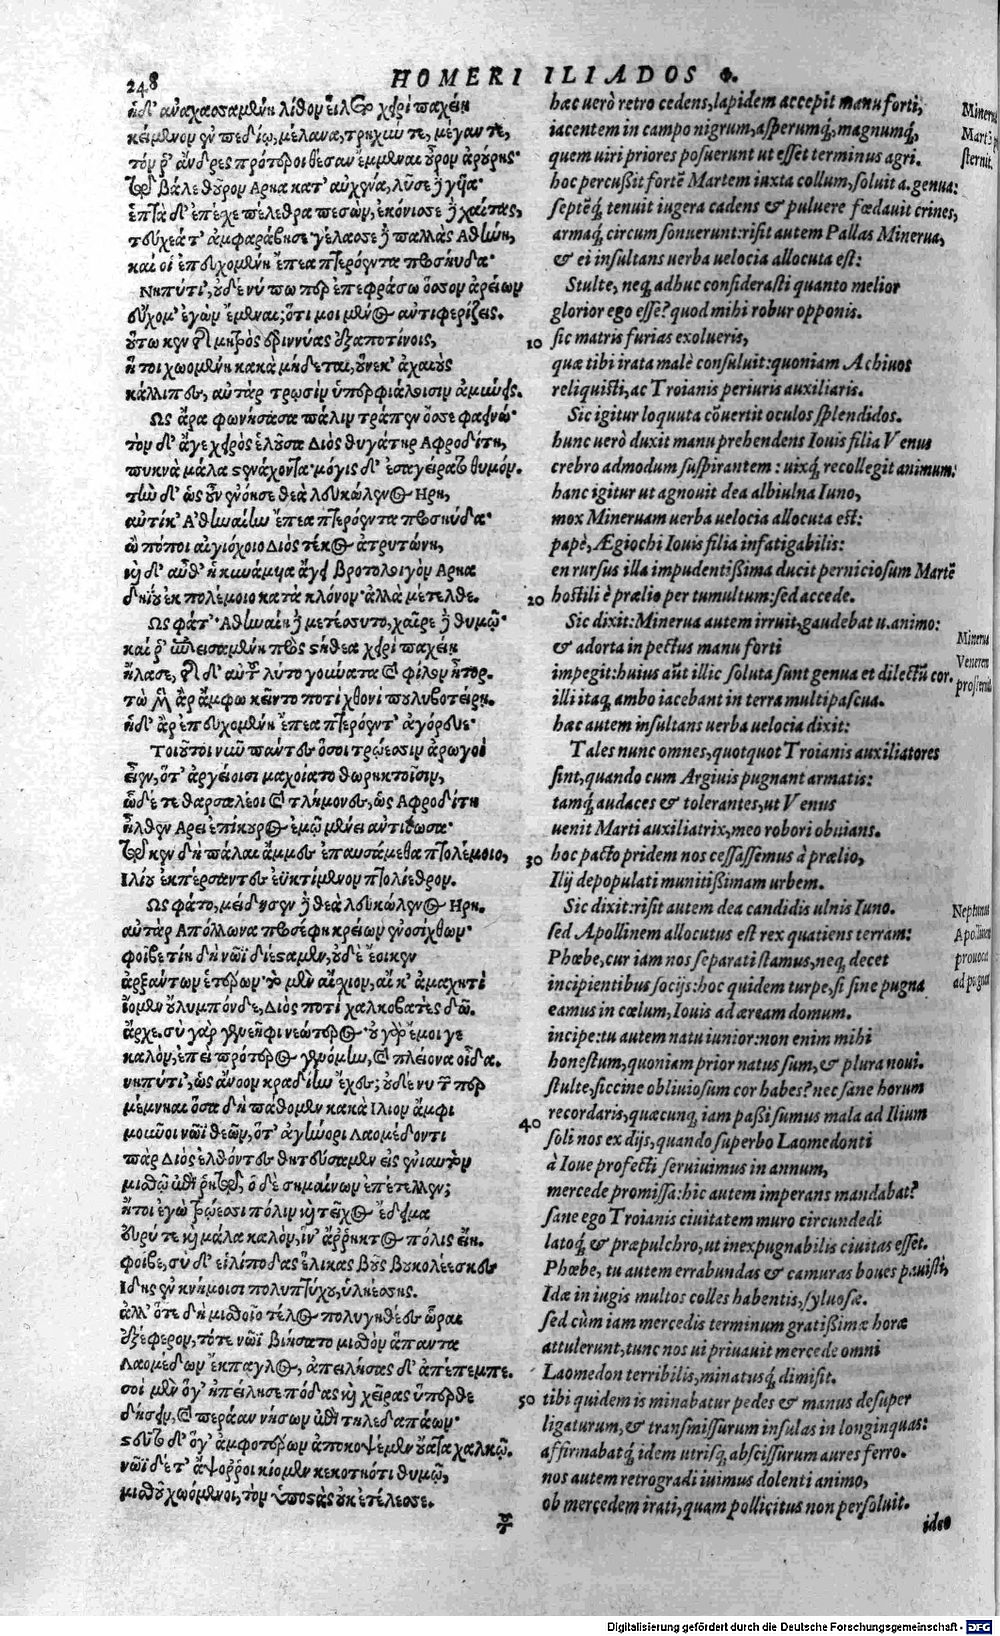 248
HOMERI ILIADOS Φ.
ἡ δ' ἀναχασσαμένη λίθον εἵλετο χειρὶ παχείῃ
κείμενον ἐν πεδίῳ, μέλανα, τρηχύν τε, μέγαν τε,
τόν ῥ' ἄνδρες πρότεροι θέσαν ἔμμεναι οὖρον ἀρούρης·
τῷ βάλε θοῦρον Αρηα κατ' αὐχένα, λῦσε δὲ γυῖα·
ἑπτὰ δ' ἐπέσχε πέλεθρα πεσών, ἐκόνισσε δὲ χαίτας,
τεύχεά τ' ἀμφαράβησε γέλασσε δὲ παλλὰς Αθήνη,
καί οἱ ἐπευχομένη ἔπεα πτερόεντα προσηύδα·
Νηπύτι', οὐδέ νύ πω περ ἐπεφράσω ὅσσον ἀρείων
εὔχομ' ἐγὼν ἔμεναι; ὅτι μοι μένος αὐτιφερίζεις.
οὕτω κεν τῆς μητρὸς ἐριννύας ἐξαποτίνοις,
ἥ τοι χωομένη κακὰ μήδεται, οὕνεκ' ἀχαιοὺς
κάλλιπες, αὐτὰρ τρωσὶν ὑπερφιάλοισιν ἀμύνεις.
Ως ἄρα φωνήσασα πάλιν τράπεν ὄσσε φαεινώ·
τὸν δ' ἄγε χειρὸς ἑλοῦσα Διὸς θυγάτηρ Αφροδίτη,
πυκνὰ μάλα στενάχοντα· μόγις δ' ἐσαγείρατο θυμόν.
τὴν δ' ὡς οὖν ἐνόησε θεὰ λευκώλενος Ηρη,
αὐτίκ' Αθηναίην ἔπεα πτερόεντα προσηύδα·
ὢ πόποι αἰγιόχοιο Διὸς τέκος ἀτρυτώνη,
καὶ δ' αὖθ' ἡ κυνάμυια ἄγει βροτολοιγὸν Αρηα
δηΐου ἐκ πολέμοιο κατὰ κλόνον· ἀλλὰ μετελθε.
Ως φάτ'· Αθηναίη δὲ μετέσσυτο, χαῖρε δὲ θυμῷ·
καί ῥ' ἐπιεισαμένη πρὸς στήθεα χειρὶ παχείῃ
ἤλασε, τῆς δ' αὐτοῦ λύτο γούνατα καὶ φίλον ἦτορ.
τὼ μὲν ἄρ' ἄμφω κεῖντο ποτὶ χθονὶ πουλυβοτείρῃ.
ἡ δ' ἄρ' ἐπευχομένη ἔπεα πτερόεντ' ἀγόρευε·
Τοιοῦτοι νῦν πάντες ὅσοι τρώεσσιν ἀρωγοὶ
εἶεν, ὅτ' ἀργείοισι μαχοίατο θωρηκτοῖσιν,
ὧδέ τε θαρσαλέοι καὶ τλήμονες, ὡς Αφροδίτη
ἦλθεν Αρει ἐπίκουρος ἐμῷ μένει ἀντιόωσα·
τῷ κεν δὴ πάλαι ἄμμες ἐπαυσάμεθα πτολέμοιο,
Ιλίου ἐκπέρσαντες ἐϋκτίμενον πτολίεθρον.
Ως φάτο, μείδησεν δὲ θεὰ λευκώλενος Ηρη.
αὐτὰρ Απόλλωνα προσέφη κρείων ἐνοσίχθων·
φοῖβε τίη δὴ νῶϊ διέσταμεν, οὐδὲ ἔοικεν
ἀρξάντων ἑτέρων· τὸ μὲν αἴσχιον, αἴ κ' ἀμαχητὶ
ἴομεν οὔλυμπόνδε, Διὸς ποτὶ χαλκοβατὲς δῶ.
ἄρχε. σὺ γὰρ γενεῆφι νεώτερος· οὐ γὰρ ἔμοι γε
καλόν, ἐπεὶ πρότερος γενόμην, καὶ πλείονα οἶδα.
νηπύτι', ὡς ἄνοον κραδίην ἔχεις; οὐδέ νυ τῶν περ
μέμνηαι ὅσα δὴ πάθομεν κακὰ Ιλιον ἄμφι
μοῦνοι νῶϊ θεῶν, ὅτ' ἀγήνορι Λαομέδοντι
πὰρ Διὸς ἐλθόντες θητεύσαμεν εἰς ἐνιαυτὸν
μισθῷ ἐπὶ ῥητῷ, ὁ δὲ σημαίνων ἐπέτελλεν;
ἤτοι ἐγὼ τρώεσσι πόλιν καὶ τεῖχος ἔδειμα
εὐρύ τε καὶ μάλα καλόν, ἵν' ἄῤῥηκτος πόλις εἴη.
φοῖβε, σὺ δ' εἰλίποδας ἕλικας βοῦς βουκολέεσκες
Ιδης ἐν κνημοῖσι πολυπτύχου, ὑληέσσης.
ἀλλ' ὅτε δὴ μισθοῖο τέλος πολυγηθέες ὧραι
ἐξέφερον, τότε νῶϊ βιήσατο μισθὸν ἅπαντα
Λαομέδων ἔκπαγλος, ἀπειλήσας δ' ἀπέπεμπε.
σοὶ μὲν ὅγ' ἠπείλησε πόδας καὶ χεῖρας ὕπερθε
δήσειν, καὶ περάαν νήσων ἐπὶ τηλεδαπάων·
στεῦτο δ' ὅγ' ἀμφοτέρων ἀποκοψέμεν οὔατα χαλκῷ.
νῶϊ δέ τ' ἄψοῤῥοι κίομεν κεκοτηότι θυμῷ,
μισθοῦ χωόμενοι, τὸν ὑποστὰς οὐκ ἐτέλεσσε.
10
20
30
40
50
hæc uerò retro cedens, lapidem accepit manu forti,
iacentem in campo nigrum, asperumq́, magnumq́,
quem uiri priores posuerunt ut esset terminus agri.
hoc percußit fortē Martem iuxta collum, soluit a. genua:
septēq́ tenuit iugera cadens & puluere fœdauit crines,
armaq́ circum sonuerunt: risit autem Pallas Minerua,
& ei insultans uerba uelocia allocuta est:
Stulte, neq́ adhuc considerasti quanto melior
glorior ego esse? quod mihi robur opponis.
sic matris furias exolueris,
quæ tibi irata malè consuluit: quoniam Achiuos
reliquisti, ac Troianis periuris auxiliaris.
Sic igitur loquuta cōuertit oculos splendidos.
hunc uerò duxit manu prehendens Iouis filia Venus
crebro admodum suspirantem: uixq́ recollegit animum.
hanc igitur ut agnouit dea albiulna Iuno,
mox Mineruam uerba uelocia allocuta est:
papè, Ægiochi Iouis filia infatigabilis:
en rursus illa impudentißima ducit perniciosum Martē
hostili è prælio per tumultum: sed accede.
Sic dixit: Minerua autem irruit, gaudebat u. animo:
& adorta in pectus manu forti
impegit: huius aūt illic soluta sunt genua et dilectū cor.
illi itaq́ ambo iacebant in terra multipascua.
hæc autem insultans uerba uelocia dixit:
Tales nunc omnes, quotquot Troianis auxiliatores
sint, quando cum Argiuis pugnant armatis:
tamq́ audaces & tolerantes, ut Venus
uenit Marti auxiliatrix, meo robori obuians.
hoc pacto pridem nos cessassemus à prælio,
Ilij depopulati munitißimam urbem.
Sic dixit: risit autem dea candidis ulnis Iuno.
sed Apollinem allocutus est rex quatiens terram:
Phœbe, cur iam nos separati stamus, neq́ decet
incipientibus socijs: hoc quidem turpe, si sine pugna
eamus in cœlum, Iouis ad æream domum.
incipe: tu autem natu iunior: non enim mihi
honestum, quoniam prior natus sum, & plura noui.
stulte, siccine obliuiosum cor habes? nec sane horum
recordaris, quæcunq́ iam paßi sumus mala ad Ilium
soli nos ex dijs, quando superbo Laomedonti
à Ioue profecti seruiuimus in annum,
mercede promissa: hic autem imperans mandabat?
sane ego Troianis ciuitatem muro circundedi
latoq́ & præpulchro, ut inexpugnabilis ciuitas esset.
Phœbe, tu autem errabundas & camuras boues pauisti,
Idæ in iugis multos colles habentis, syluosæ.
sed cùm iam mercedis terminum gratißimæ horæ
attulerunt, tunc nos ui priuauit mercede omni
Laomedon terribilis, minatusq́ dimisit.
tibi quidem is minabatur pedes & manus desuper
ligaturum, & transmissurum insulas in longinquas:
affirmabatq́ idem utrisq́ abscissurum aures ferro.
nos autem retrogradi iuimus dolenti animo,
ob mercedem irati, quam pollicitus non persoluit.
ideo
Minerua
Martē
sternit.
Minerua
Venerem
prosternit
Neptunus
Apollinem
prouocat
ad pugnā
Digitalisierung gefördert durch die Deutsche Forschungsgemeinschaft - DFG